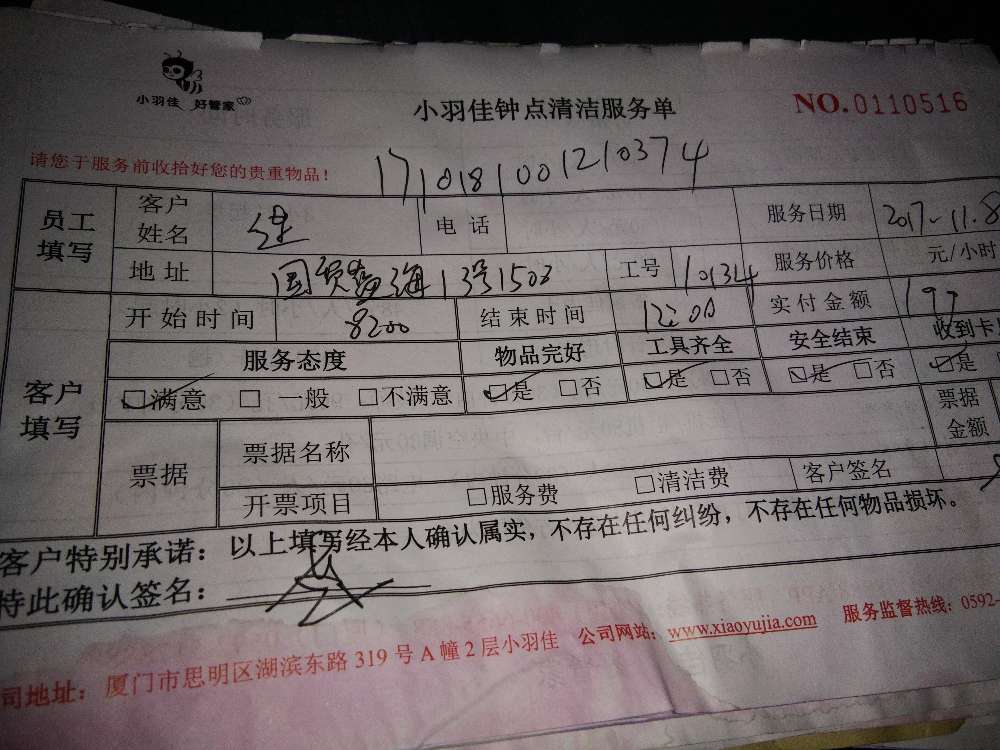 小羽佳 好管家
小羽佳钟点清洁服务单
NO.0110516
请您于服务前收拾好您的贵重物品！
1710181001210374
员工填写 客户姓名 电话 服务日期 2017-11.8
地址 13号1503 工号 10134 服务价格 元/小时
客户填写 开始时间 8:00 结束时间 12:00 实付金额 197
服务态度 物品完好 工具齐全 安全结束 收到卡
☑满意 □一般 □不满意 ☑是 □否 ☑是 □否 ☑是 □否 ☑是
票据 票据名称 票据金额
开票项目 □服务费 □清洁费 客户签名
客户特别承诺：以上填写经本人确认属实，不存在任何纠纷，不存在任何物品损坏。
特此确认签名：
司地址：厦门市思明区湖滨东路 319 号 A 幢 2 层小羽佳 公司网站：www.xiaoyujia.com 服务监督热线：0592-